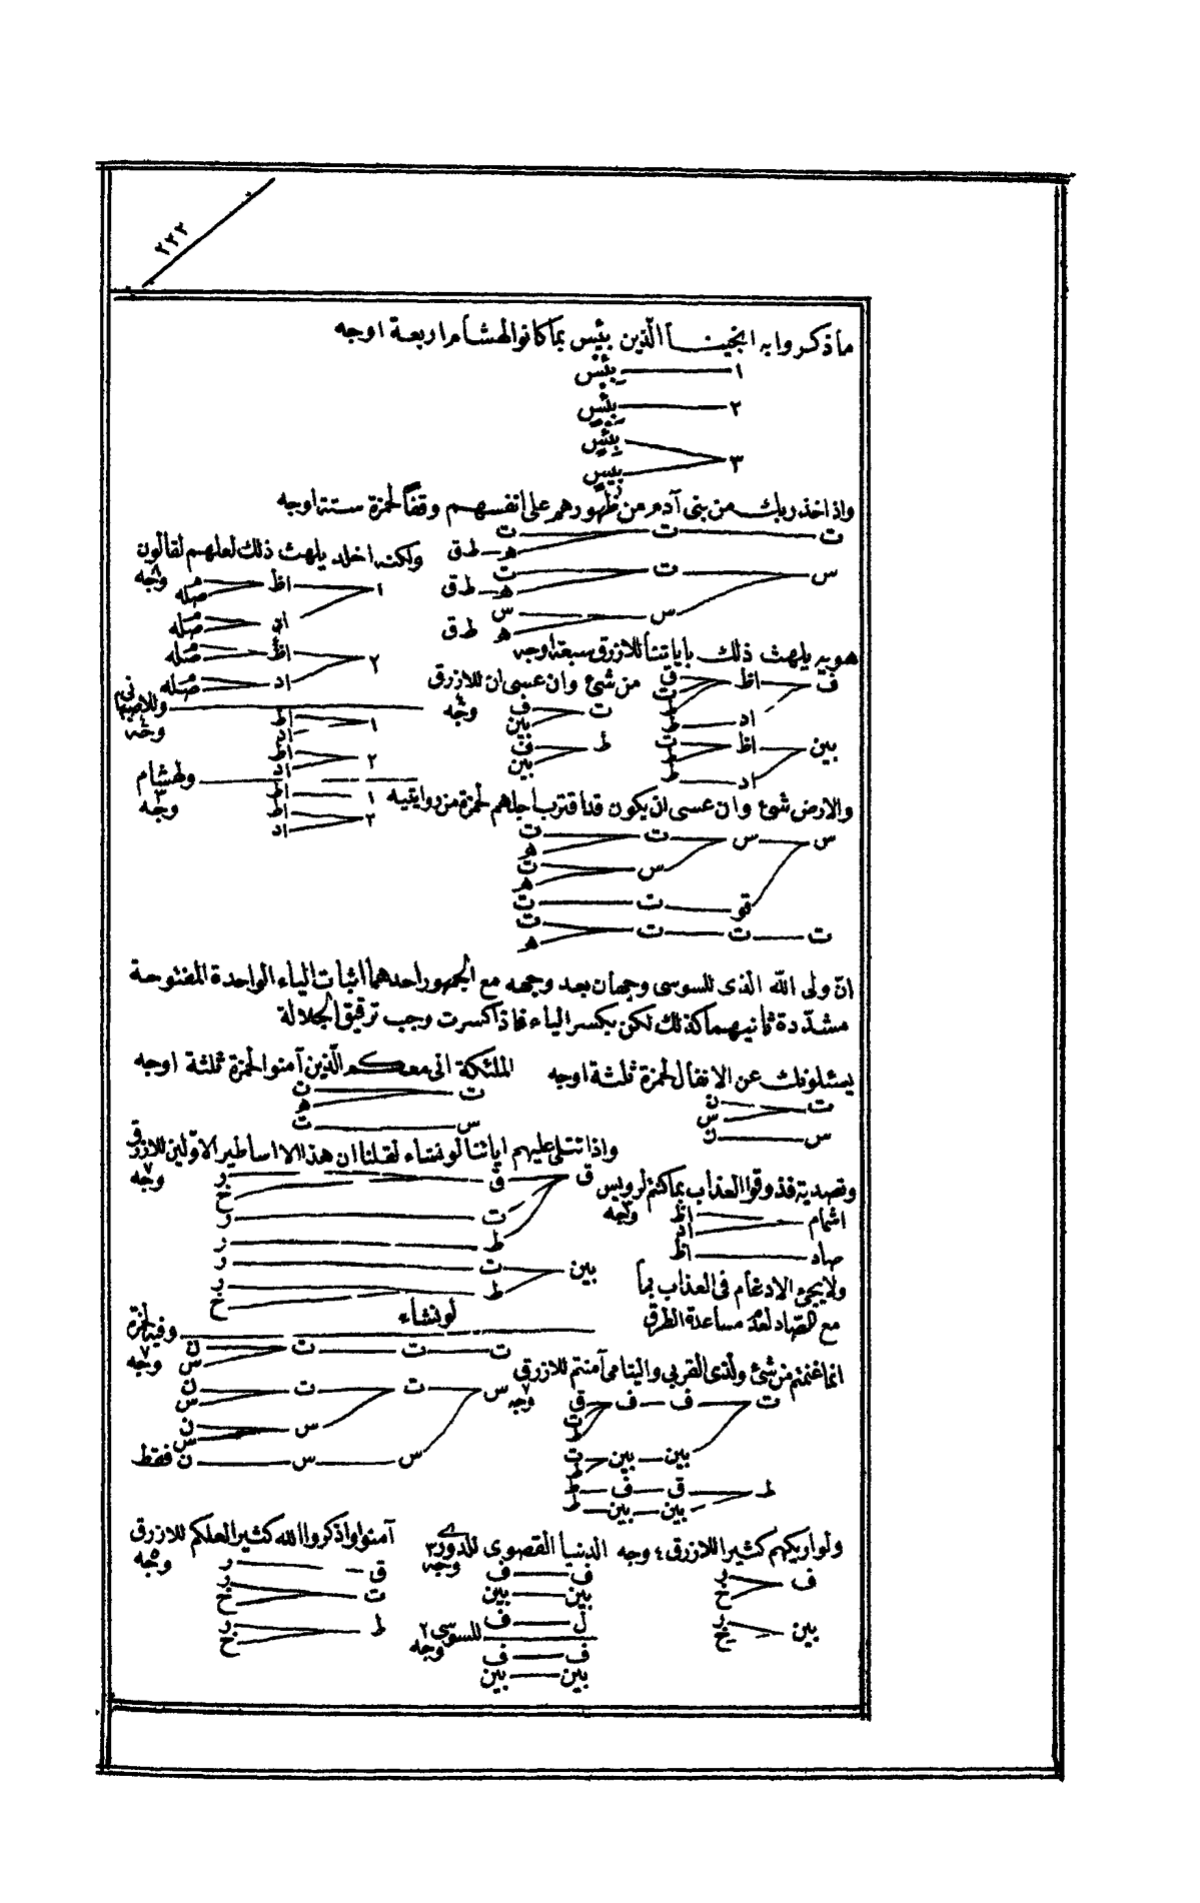 ٢٢٢
ما ذكروا به انجينا الّذين بئيس بما كانوا لهشام اربعة اوجه
١ بئيس
٢ بئيس
بئيس
٣
بييس
واذ اخذ ربك من بنى آدم من ظهورهم على انفسهم وقفاً لحمزة ستة اوجه
ت ت ت
ه ط ق
س ت ت
ه ط ق
س س
ه ط ق
ولكنه اخلد يلهث ذلك لعلهم لقالون
٨ وجه
١ اظ م
صله
اد م
صله
٢ اظ م
صله
اد م
صله
وللاصبهانى
٤ وجه
١ اظ
اد
٢ اظ
اد
ولهشام
٣ وجه
١ اظ
٢ اظ
اد
هويه يلهث ذلك باياتنا للازرق سبعة اوجه
ف اظ ق
ت
ط
اد ط
بين اظ ت
ط
اد ط
من شئ وان عسى ان للازرق
٤ وجه
ت ف
بين
ط ف
بين
والارض شئ وان عسى ان يكون قد اقترب اجلهم لحمزة من روايتيه
س س ت ت
ه
س ت
ه
قو ت ت
ت ت ت ت
ه
انّ ولى الله الذى للسوسى وجهان بعد وجهه مع الجمهور احدهما اثبات الياء الواحدة المفتوحة
مشدّدة ثانيهما كذلك لكن بكسر الياء فاذا كسرت وجب ترقيق الجلالة
يسئلونك عن الانفال لحمزة ثلثة اوجه
ت ن
س
س ن
الملئكة انى معكم الّذين آمنوا لحمزة ثلثة اوجه
ت ن
ه
س ت
واذا تتلى عليهم اياتنا لو نشاء لقلنا ان هذا الا اساطير الاوّلين للازرق
٧ وجه
ق ق ر
خ
ت ر
ط ر
بين ت ر
ط ر
خ
وتصدية فذوقوا العذاب بما كنتم لرويس
٣ وجه
اشمام اظ
اد
صاد اظ
ولا يجئ الادغام فى العذاب بما
مع الصاد لعدم مساعدة الطرق
لو نشاء
وفيه لحمزة
٧ وجه
ت ت ت ن
س
س ت ت ن
س
س ن
س
س س ن فقط
انما غنمتم من شئ ولذى القربى واليتامى آمنتم للازرق
٧ وجه
ت ف ف ق
ت
ط
بين بين ت
ط
ط ق ف ط
بين بين ط
ولو اريكهم كثيرا للازرق ٤ وجه
ف ر
خ
بين ر
خ
الدنيا القصوى للدورى
٣ وجه
ف ف
بين بين
ل ف
للسوسى ٢
وجه
ف ف
بين بين
آمنوا واذكروا الله كثيرا لعلكم للازرق
٥ وجه
ق ر
ت ر
خ
ط ر
خ